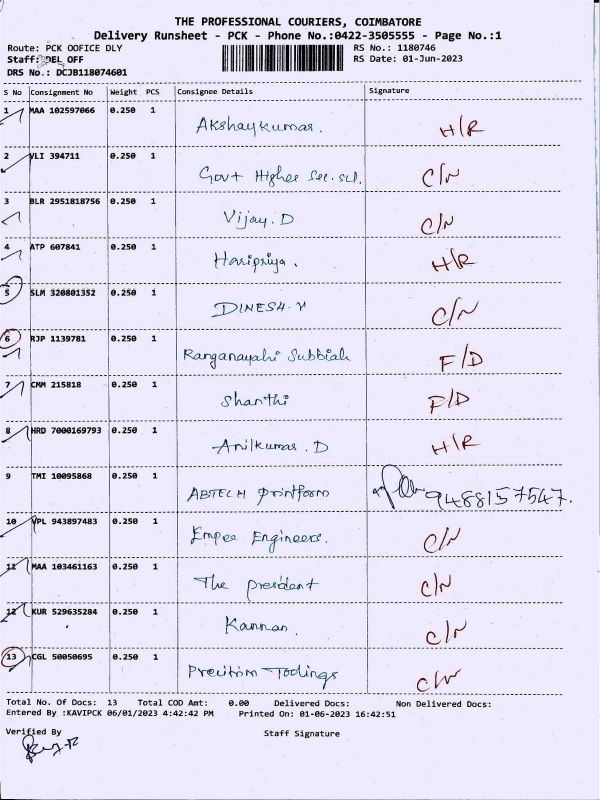 THE PROFESSIONAL COURIERS, COIMBATORE
Delivery Runsheet - PCK - Phone No.:0422-3505555 - Page No.:1
Route: PCK OOFICE DLY RS No.: 1180746
Staff: DEL OFF RS Date: 01-Jun-2023
DRS No.: DCJB118074601
S No Consignment No Weight PCS Consignee Details Signature
1 MAA 102597066 0.250 1 Akshaykumar. H/R
2 VLI 394711 0.250 1 Govt Higher Sec. scl. C/N
3 BLR 2951818756 0.250 1 Vijay. D C/N
4 ATP 607841 0.250 1 Haripriya. H/R
5 SLM 320801352 0.250 1 DINESH. V C/N
6 RJP 1139781 0.250 1 Ranganayahi Subbiah F/D
7 CMM 215818 0.250 1 Shanthi F/D
8 HRD 7000169793 0.250 1 Anilkumar. D H/R
9 TMI 10095868 0.250 1 ABTECH printform 9488157547.
10 VPL 943897483 0.250 1 Empee Engineers. C/N
11 MAA 103461163 0.250 1 The president C/N
12 KUR 529635284 0.250 1 Kannan. C/N
13 CGL 50050695 0.250 1 Precitrim Toolings C/N
Total No. Of Docs: 13 Total COD Amt: 0.00 Delivered Docs: Non Delivered Docs:
Entered By :KAVIPCK 06/01/2023 4:42:42 PM Printed On: 01-06-2023 16:42:51
Verified By Staff Signature